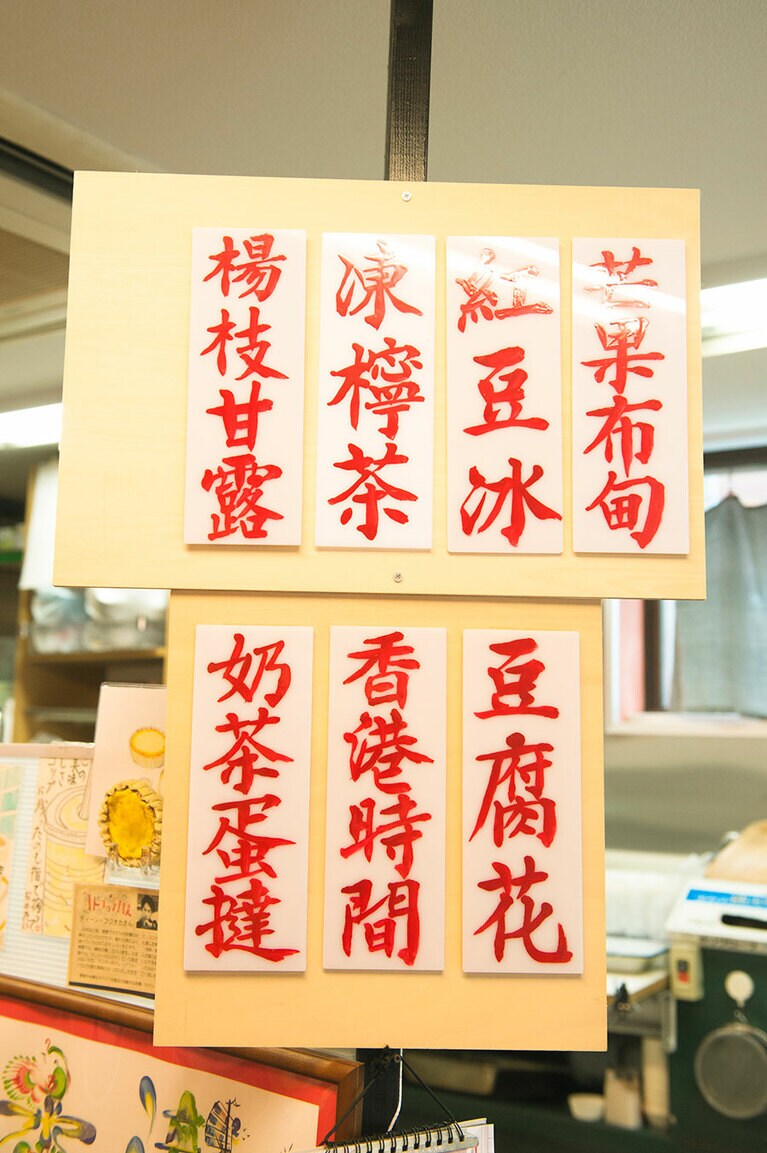 芒果布甸
紅豆冰
凍檸茶
楊枝甘露
豆腐花
香港時間
奶茶蛋撻